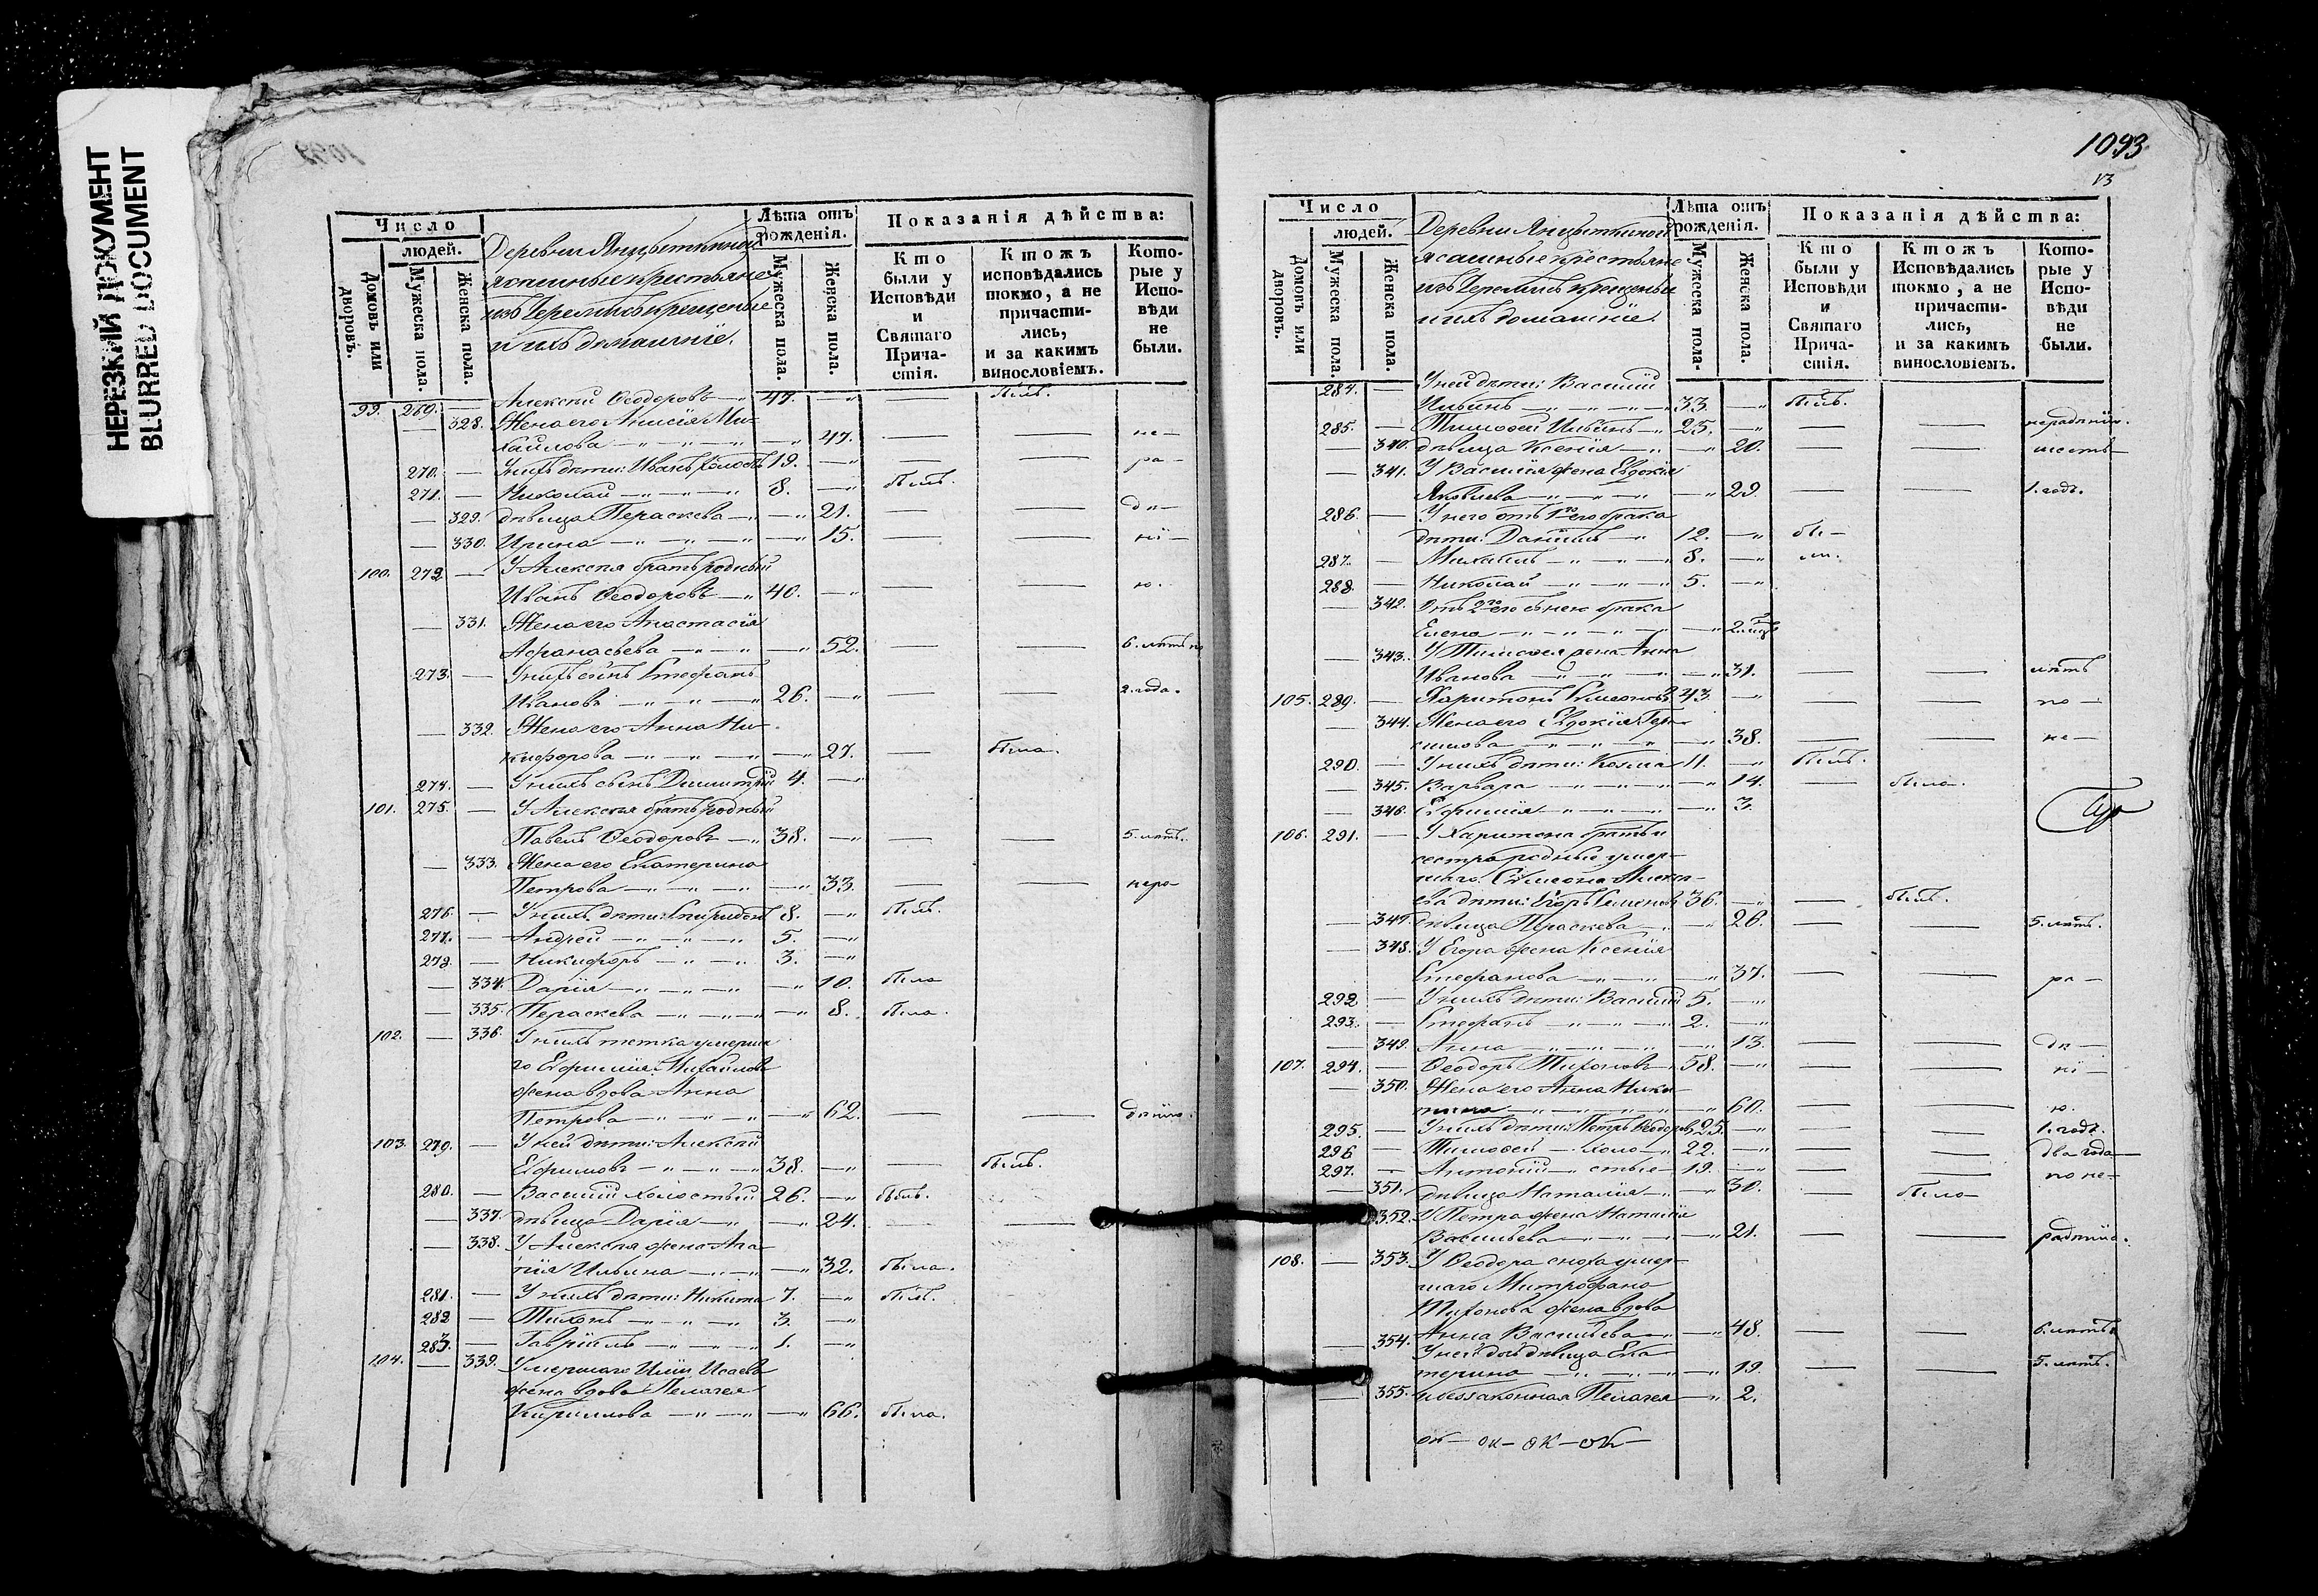 НЕРЕЗКИЙ ДОКУМЕНТ
BLURRED DOCUMENT
Число
людей.
Домовъ или дворовъ.
Мужеска пола.
Женска пола.
Деревни
ясашные крестьяне
изъ Черемисъ крещеные
и ихъ домашніе.
Лѣта отъ рожденія.
Мужеска пола.
Женска пола.
Показанія дѣйства:
Кто были у Исповѣди и Святаго Причастія.
Ктожъ исповѣдались токмо, а не причастились, и за какимъ винословіемъ.
Которые у Исповѣди не были.
99. 260. — Алексѣй Ѳеодоровъ — 47. — — былъ.
— 328. Жена его Анисія Ми-
хайлова — 47. — — не—
270. — У нихъ дѣти: Иванъ холостъ 19. — — ра—
271. — Николай — 8. — былъ.
— 329. дѣвица Параскева — 21. — — дѣ—
— 330. Ирина — 15. — — ні—
100. 272 — У Алексѣя братъ родный
Иванъ Ѳеодоровъ — 40. — — ю.
— 331. Жена его Анастасія
Афанасьева — 52. — — 6. лѣтъ
273. — У нихъ сынъ Стефанъ
Ивановъ — 26. — — 2. года.
— 332. Жена его Анна Ни-
кифорова — 27. — была.
274. — У нихъ сынъ Димитрій 4. —
101. 275. — У Алексѣя братъ родный
Павелъ Ѳеодоровъ — 38. — — 5. лѣтъ.
— 333. Жена его Екатерина
Петрова — 33. — — нера—
276. — У нихъ дѣти: Спиридонъ 8. — былъ.
277. — Андрей — 5. —
278. — Никифоръ — 3. —
— 334. Дарія — 10. была
— 335. Параскева — 8. была.
102. — 336. У нихъ тетка умерша
го Ефимія Михайлова
жена вдова Анна
Петрова — 62. — — дѣнію.
103. 279. — У ней дѣти: Алексѣй
Ефимовъ — 38. — — былъ.
280. — Василій холостый 26. — былъ.
— 337. дѣвица Дарія — 24. — —
— 338. У Алексѣя жена Ага
пія Ильина — 32. была.
281. — У нихъ дѣти: Никита 7. — былъ.
282 — Тихонъ — 3. —
283. — Гавріилъ — 1. —
104. — 339. Умершаго Иліи Исаева
жена вдова Пелагея
Кириллова — 66. была.
1093
Число
людей.
Домовъ или дворовъ.
Мужеска пола.
Женска пола.
Деревни
ясашные крестьяне
изъ Черемисъ крещеные
и ихъ домашніе.
Лѣта отъ рожденія.
Мужеска пола.
Женска пола.
Показанія дѣйства:
Кто были у Исповѣди и Святаго Причастія.
Ктожъ Исповѣдались токмо, а не причастились, и за какимъ винословіемъ.
Которые у Исповѣди не были.
284. — У ней дѣти: Василій
Ильинъ — 33. — былъ.
285. — Тимоѳей Ильинъ — 25. — — нерадѣнію.
— 340. дѣвица Ксенія — 20. — — шесть—
— 341. У Василія жена Евдокія
Яковлева — 29. — — 1. годъ.
286. — У него отъ 1го его брака
дѣти: Даніилъ — 12. — бы—
287. — Михаилъ — 8. — ли.
288. — Николай — 5. —
— 342. Отъ 2го его брака
Елена — 2.
— 343. У Тимоѳея жена Анна
Иванова — 31. — — лѣтъ
105. 289. — Харитонъ Симеоновъ 43 — — по—
— 344. Жена его Евдокія Гера-
симова — 38. — — не—
290. — У нихъ дѣти: Козма 11. — былъ.
— 345. Варвара — 14. — была.
— 346. Ефимія — 3.
106. 291. — У Харитона братъ и
сестра родные умер-
шаго Симеона Алексѣ-
ева дѣти: Егоръ Семеновъ 36. — былъ.
— 347. дѣвица Параскева — 26. — 5. лѣтъ.
— 348. У Егора жена Ксенія
Стефанова — 37. — — ра—
292 — У нихъ дѣти: Василій 5. —
293. — Стефанъ — 2. —
— 349. Анна — 13. — — дѣ—
107. 294. — Ѳеодоръ Тихоновъ — 58. — — ні—
— 350. Жена его Анна Ники-
тина — 60. — — ю.
295. — У нихъ дѣти: Петръ Ѳеодоровъ 25. — — 1. годъ.
296 — Тимоѳей — холо— 22. — — два года—
297. — Антоній — стые — 19. — — по не—
— 351. дѣвица Наталія — 30. — была
352. У Петра жена Наталія
Васильева — 21. — — радѣнію.
108. — 353. У Ѳеодора сноха умер-
шаго Митрофана
Тихонова жена вдова
Анна Васильева — 48. — — 6. лѣтъ
— 354. У ней дочь дѣвица Ека-
терина — 19. — — 5. лѣтъ.
— 355. незаконная Пелагея — 2.